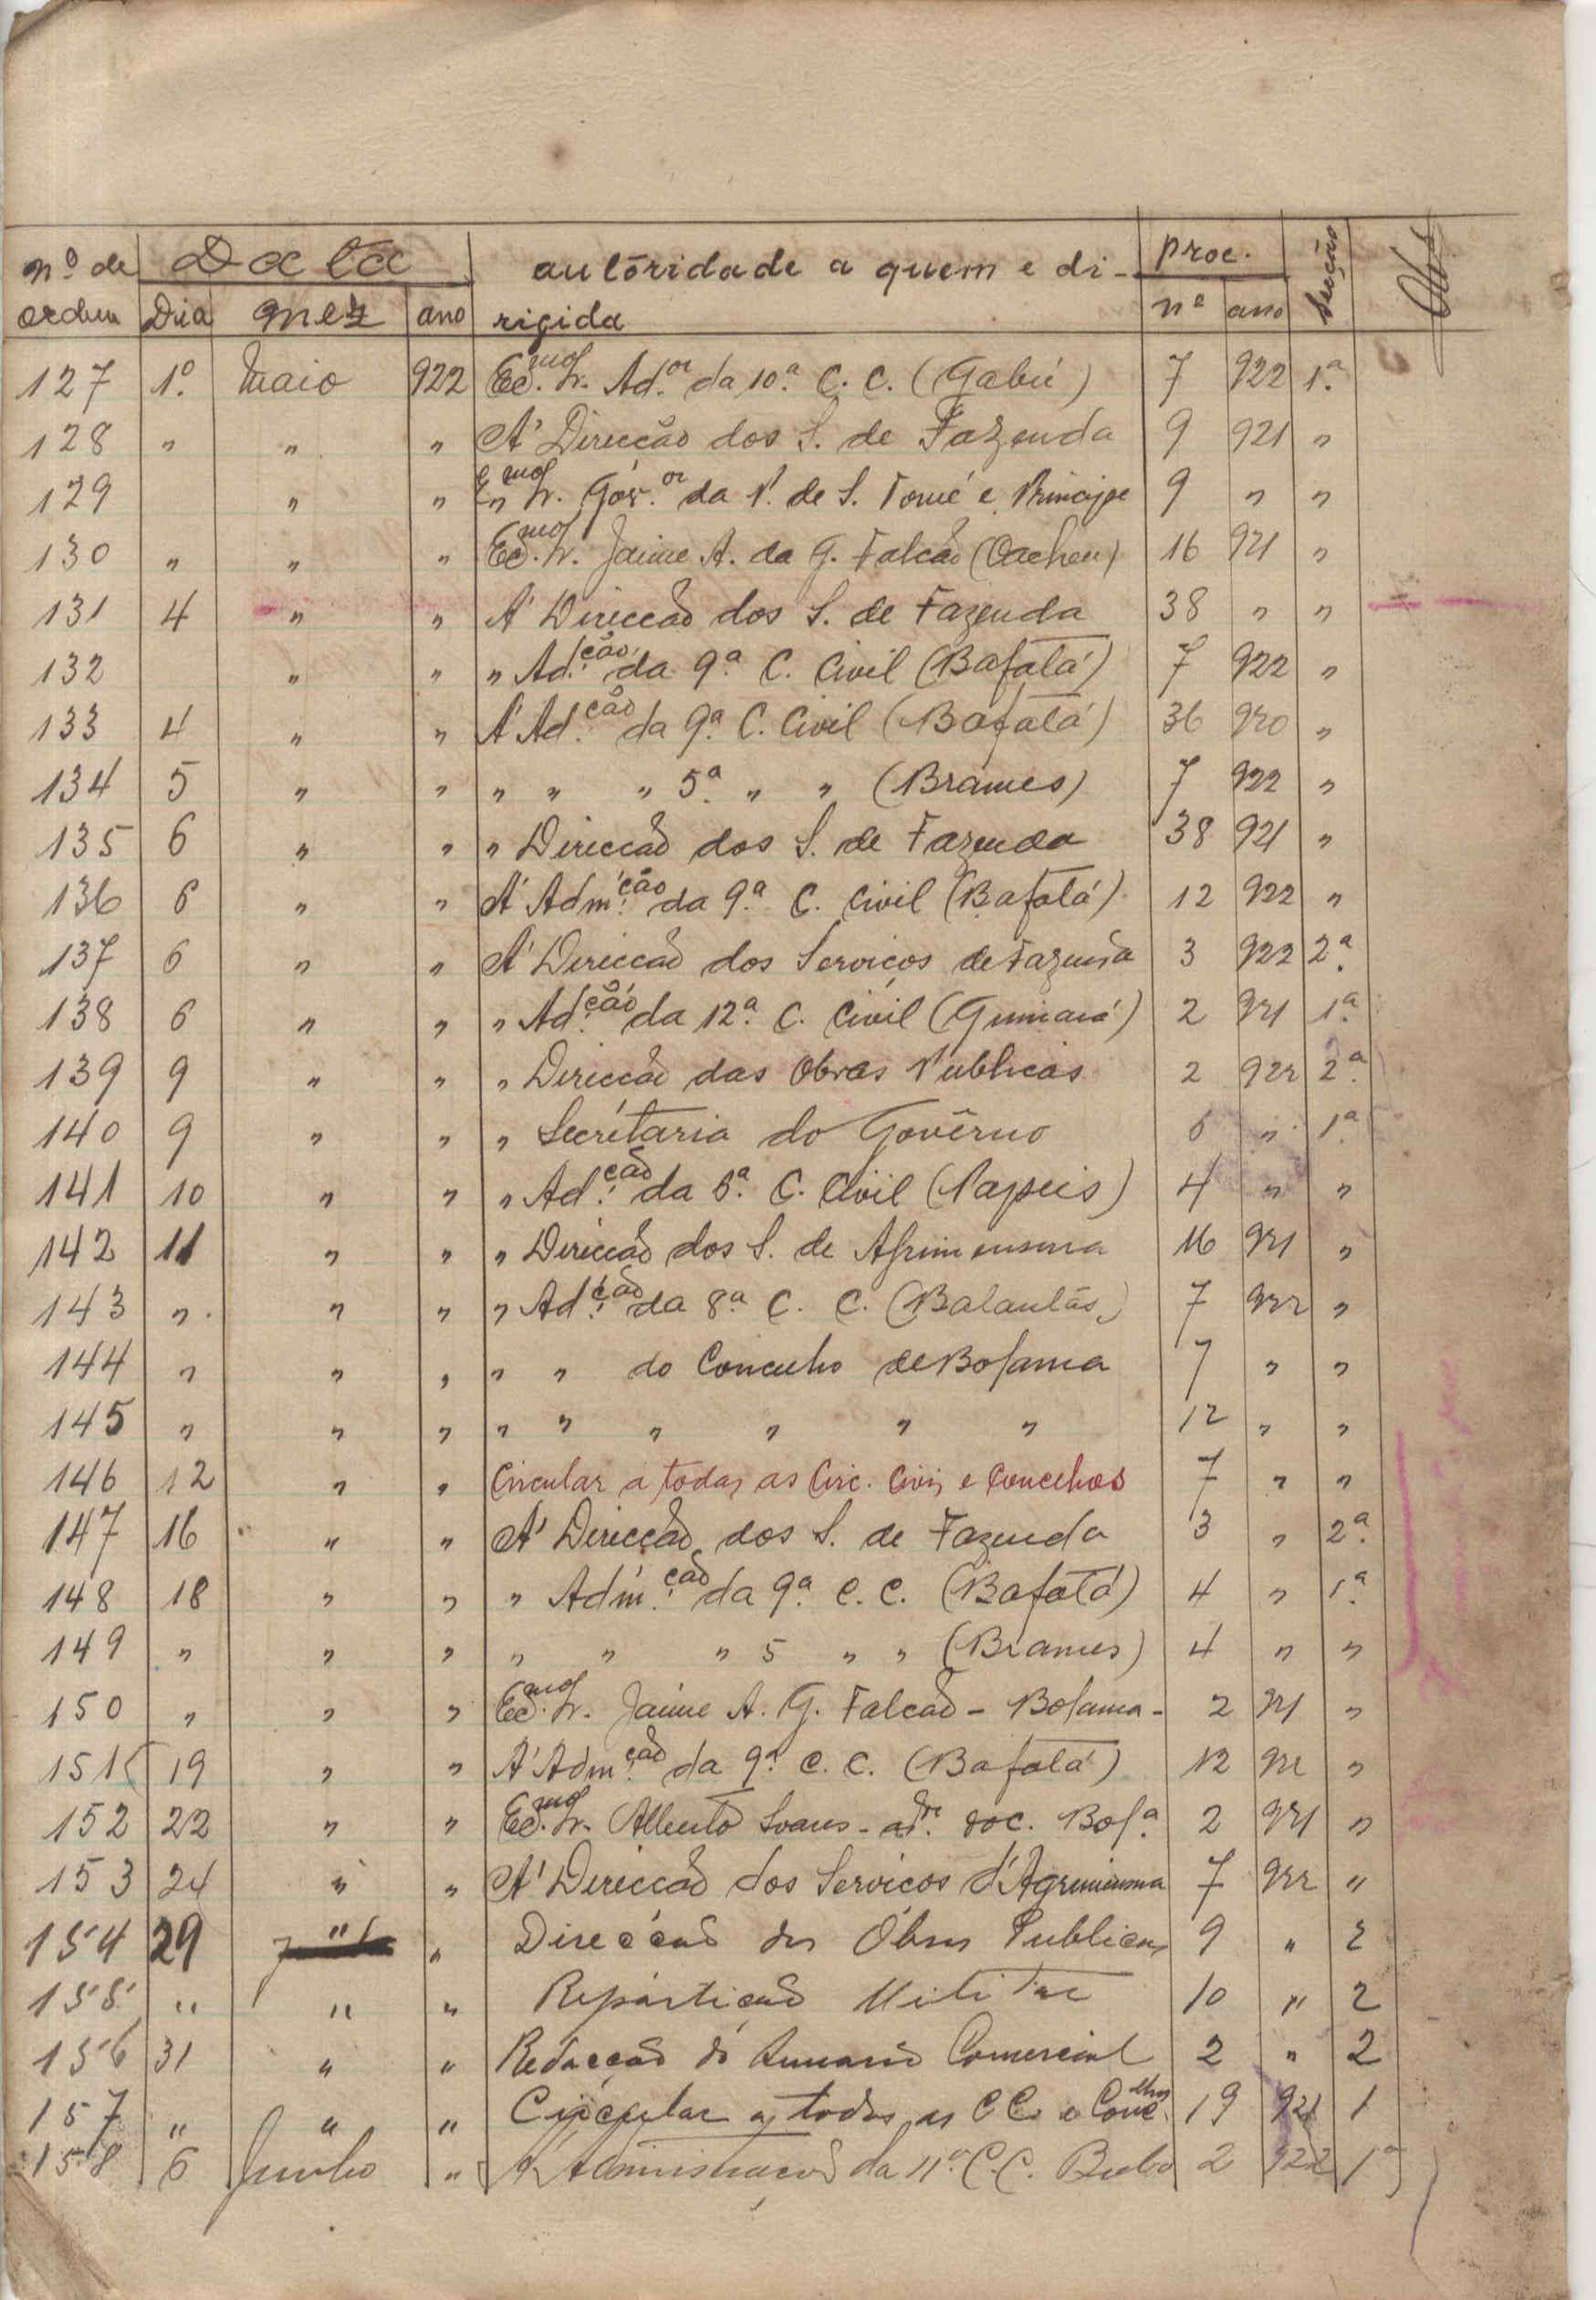 nº de Data autoridade a quem e di- proc. Secção Obs
ordem Dia mez ano rigida nº ano
127 1º. Maio 922 Ex.mo Sr. Ad.or da 10.ª C. C. (Gabú) 7 922 1.ª
128 " " " Á Direcção dos S. de Fazenda 9 921 "
129 " " Ex.mo Sr. Gov.or da P. de S. Tomé e Principe 9 " "
130 " " " Ex.mo Sr. Jaime A. da G. Falcão (Cacheu) 16 921 "
131 4 " " Á Direcção dos S. de Fazenda 38 " "
132 " " " Ad.ção da 9.ª C. Civil (Bafatá) 7 922 "
133 4 " " Á Ad.ção da 9.ª C. Civil (Bafatá) 36 920 "
134 5 " " " " " 5.ª " " (Brames) 7 922 "
135 6 " " " Direcção dos S. de Fazenda 38 921 "
136 6 " " Á Adm.ção da 9.ª C. Civil (Bafatá) 12 922 "
137 6 " " Á Direcção dos Serviços de Fazenda 3 922 2.ª
138 6 " " " Ad.ção da 12.ª C. Civil 2 921 1.ª
139 9 " " " Direcção das Obras Publicas 2 922 2.ª
140 9 " " " Secrétaria do Govêrno 6 " 1.ª
141 10 " " " Ad.ção da 6.ª C. Civil (Papeis) 4 " "
142 11 " " " Direcção dos S. de Agrimensura 16 921 "
143 " " " " Ad.ção da 8.ª C. C. (Balantas) 7 922 "
144 " " " " " do Concelho de Bolama 7 " "
145 " " " " " " " " " 12 " "
146 12 " " Circular a todas as Circ. Civis e Concelhos 7 " "
147 16 " " Á Direcção dos S. de Fazenda 3 " 2.ª
148 18 " " " Adm.ção da 9.ª C. C. (Bafatá) 4 " 1.ª
149 " " " " " " 5 " " (Brames) 4 " "
150 " " " Ex.mo Sr. Jaime A. G. Falcão - Bolama - 2 921 "
151 19 " " Á Adm.ção da 9.ª C. C. (Bafatá) 12 922 "
152 22 " " Ex.mo Sr. Alberto Soares - Bol.ª 2 921 "
153 24 " " Á Direcção dos Serviços d'Agrimensura 7 922 "
154 29 " " Direcção das Obras Publicas 9 " 2
155 " " " Repartição Militar 10 " 2
156 31 " " Redacção do Anuario Comercial 2 " 2
157 " " " Circular a todas as C C. e Conc.lhos 19 921 1
158 6 Junho " Á Administração da 11.ª C. C. Buba 2 922 1ª